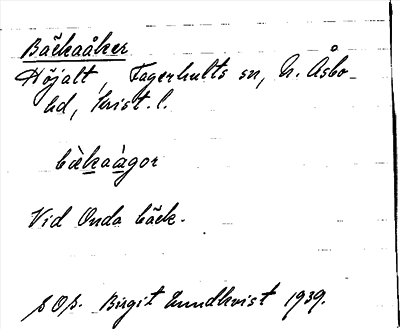 Bäckaåker
Höjalt, Fagerhults sn, N. Åsbo-
hd, Krist. l.
bàkaàgor
Vid Onda bäck.
Birgit Lundkvist 1939.